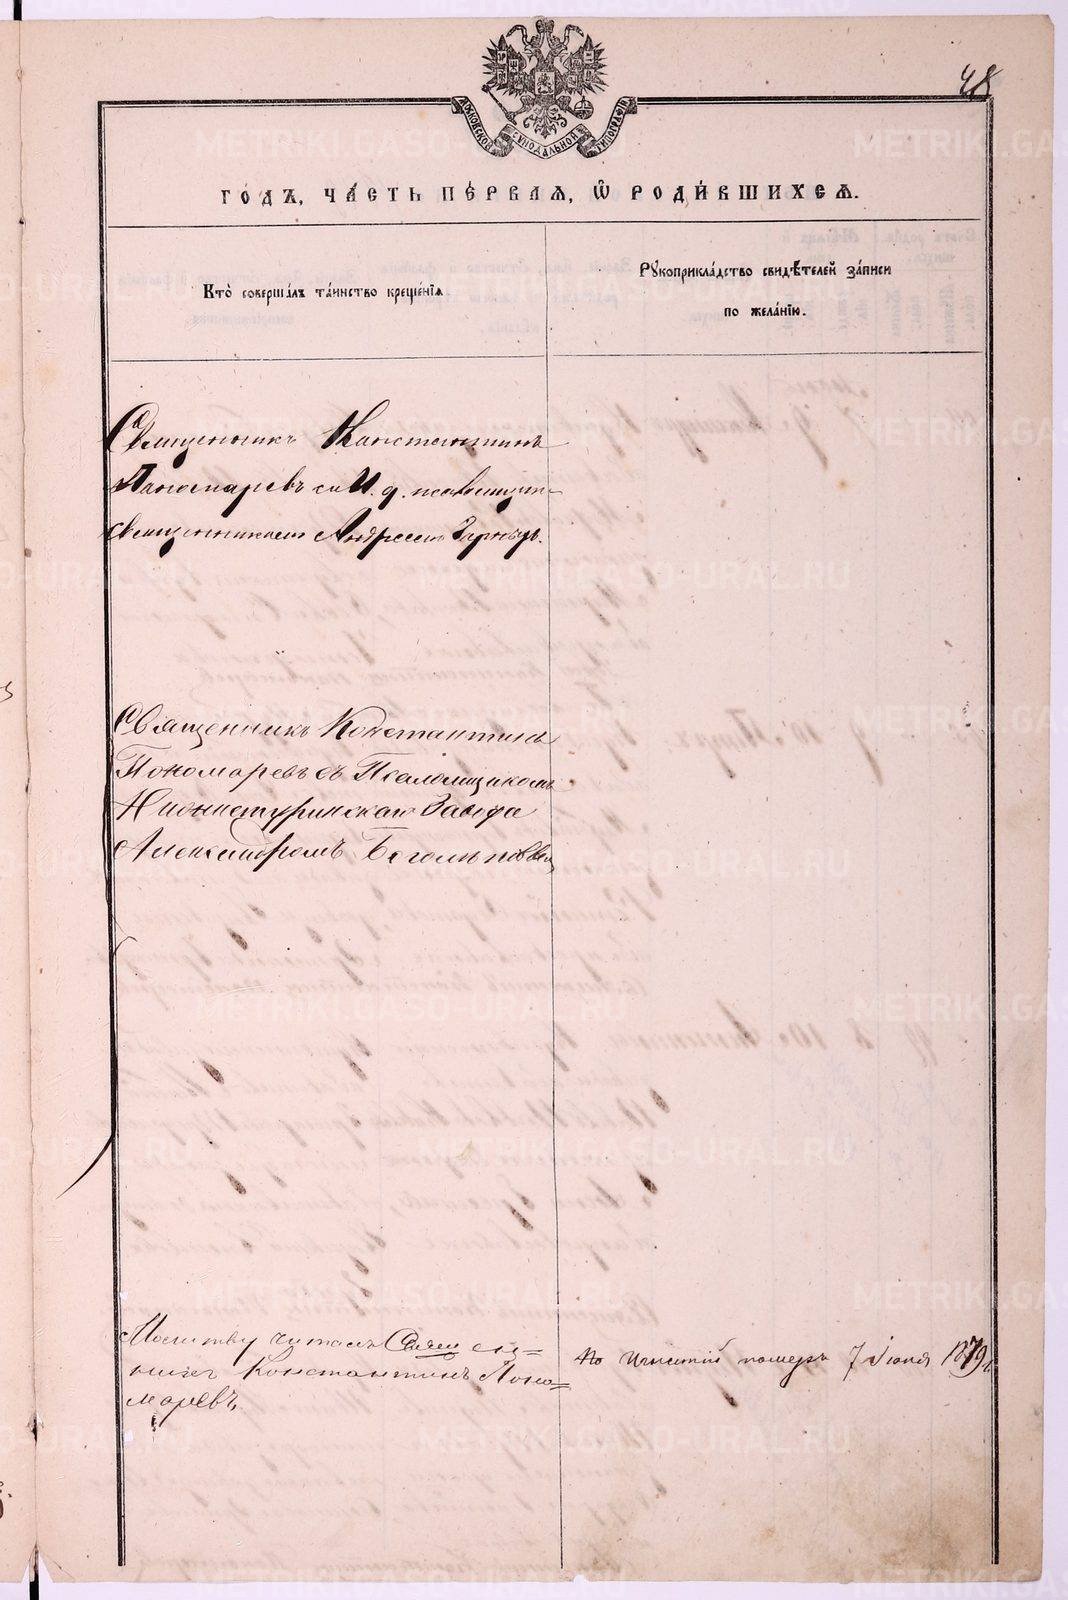 48
МОСКОВСКОЙ СѴНОДАЛЬНОЙ ТИПОГРАФІИ
ГОДЪ, ЧА́СТЬ ПЕ́РВАЯ, Ѿ РОДИ́ВШИХСѦ.
КТО̀ СОВЕРША́ЛЪ ТА́ИНСТВО КРЕЩЕ́НІЯ
РꙊКОПРИКЛА́ДСТВО СВИДѢ́ТЕЛЕЙ ЗА́ПИСИ
ПО ЖЕЛА́НІЮ.
Священникъ Константинъ
Пономаревъ съ И. д. псаломщи-
священникомъ Андреемъ
Священникъ Константинъ
Пономаревъ съ Псаломщикомъ
Нижнетуринскаго Завода
Александромъ
Молитву читалъ Свящ
Константинъ Поно=
маревъ.
померъ 7 Іюня 1879 г.
METRIKI.GASO-URAL.RU